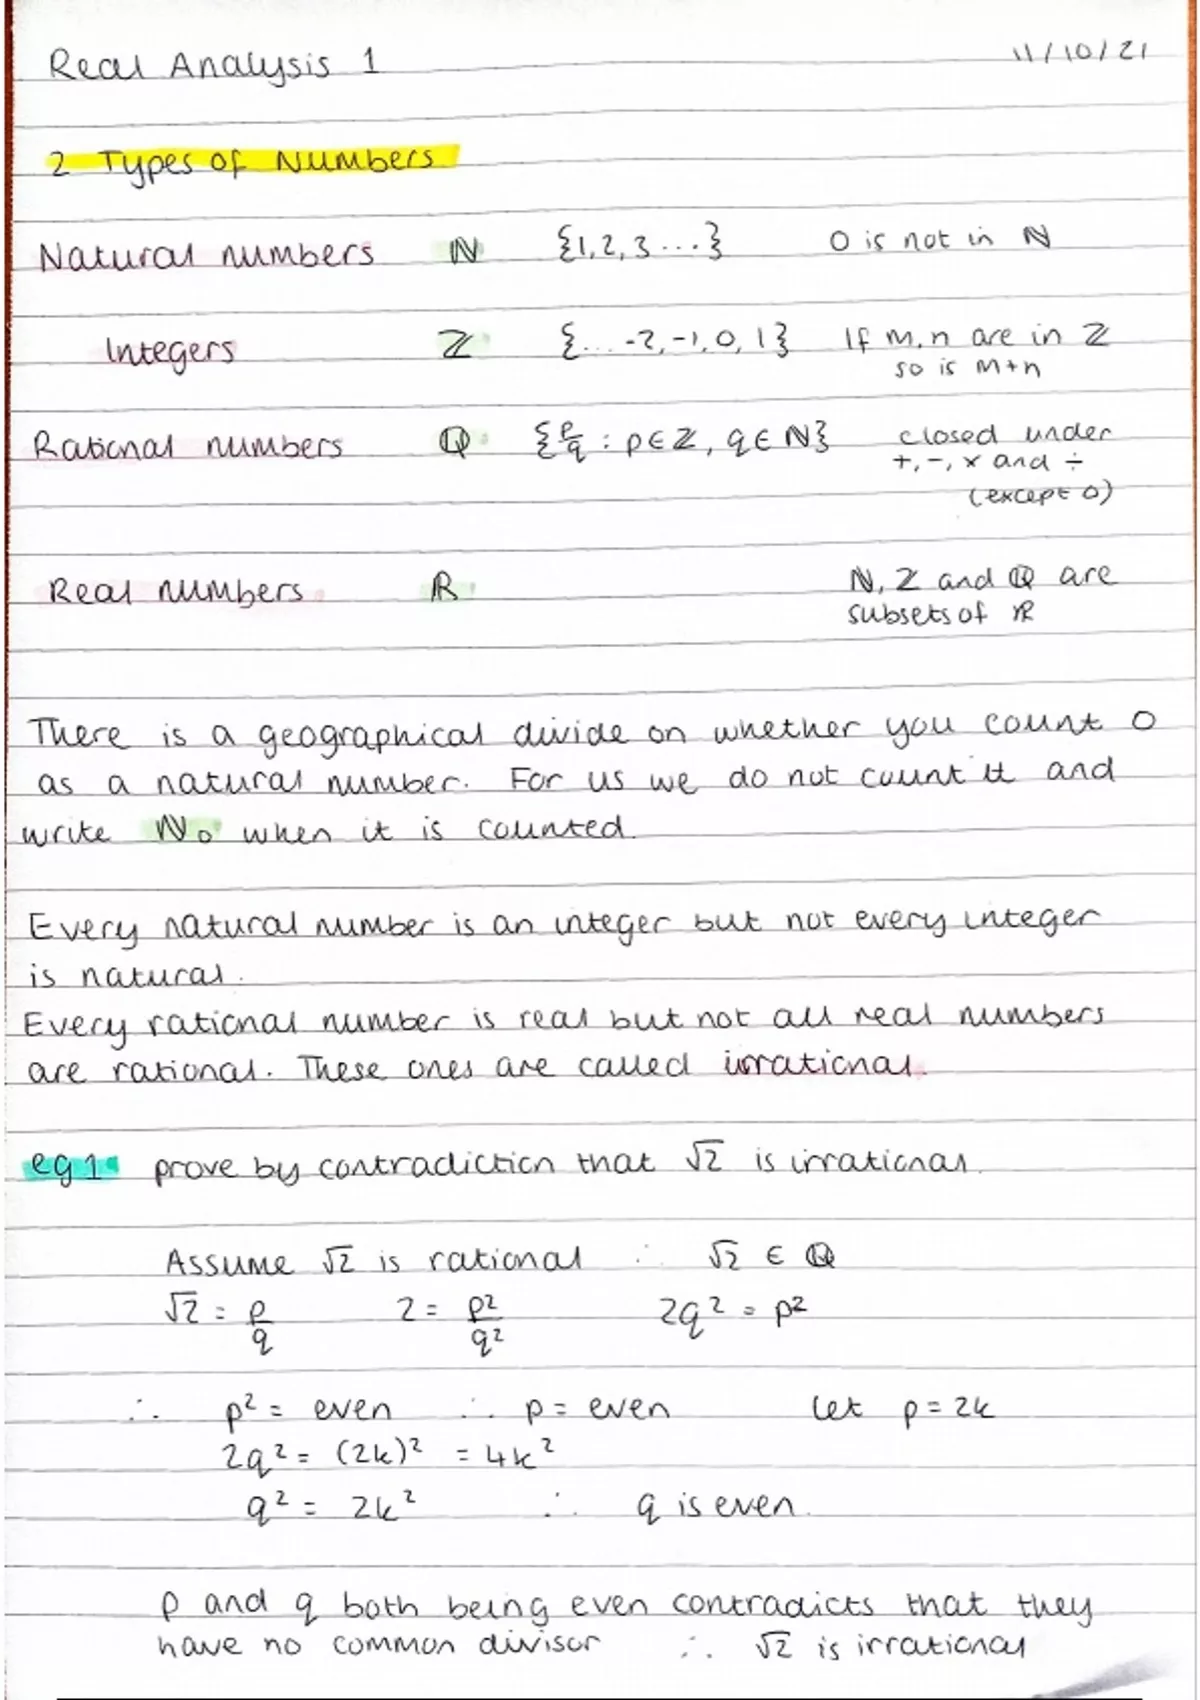 Real Analysis 1 11/10/21
2 Types of Numbers
Natural numbers ℕ {1,2,3...} 0 is not in ℕ
Integers ℤ {...-2,-1,0,1} If m,n are in ℤ
so is m+n
Rational numbers ℚ {p/q : p∈ℤ, q∈ℕ} closed under
+,-,× and ÷
(except 0)
Real numbers ℝ ℕ, ℤ and ℚ are
subsets of ℝ
There is a geographical divide on whether you count 0
as a natural number. For us we do not count it and
write ℕ₀ when it is counted.
Every natural number is an integer but not every integer
is natural.
Every rational number is real but not all real numbers
are rational. These ones are called irrational.
eg 1 prove by contradiction that √2 is irrational.
Assume √2 is rational ∴ √2 ∈ ℚ
√2 = p/q 2 = p²/q² 2q² = p²
∴ p² = even ∴ p = even let p = 2k
2q² = (2k)² = 4k²
q² = 2k² ∴ q is even.
p and q both being even contradicts that they
have no common divisor ∴ √2 is irrational